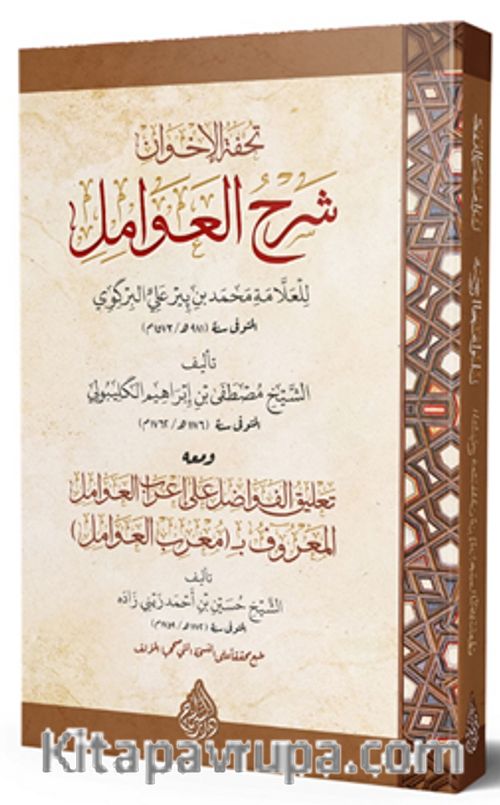 تحفة الإخوان
شَرْحُ العَوَامِلِ
لِلعَلَّامَةِ مُحَمَّد بن بِير عَلِيّ البِرْكَوِي
المتوفى سنة (٩٨١هـ/١٥٧٣م)
تأليف
الشَّيْخ مُصْطَفَى بن إِبْرَاهِيم الكَلِيبُولِي
المتوفى سنة (١١٧٦هـ/١٧٦٢م)
ومعه
تعليق الفواضل على إعراب العوامل
المعروف بـ(معرب العوامل)
تأليف
الشَّيْخ حُسَيْن بن أَحْمَد زَيْنِي زَادَه
المتوفى سنة
طبع محققا على النسخة التي صححها المؤلف
kitapavrupa.com